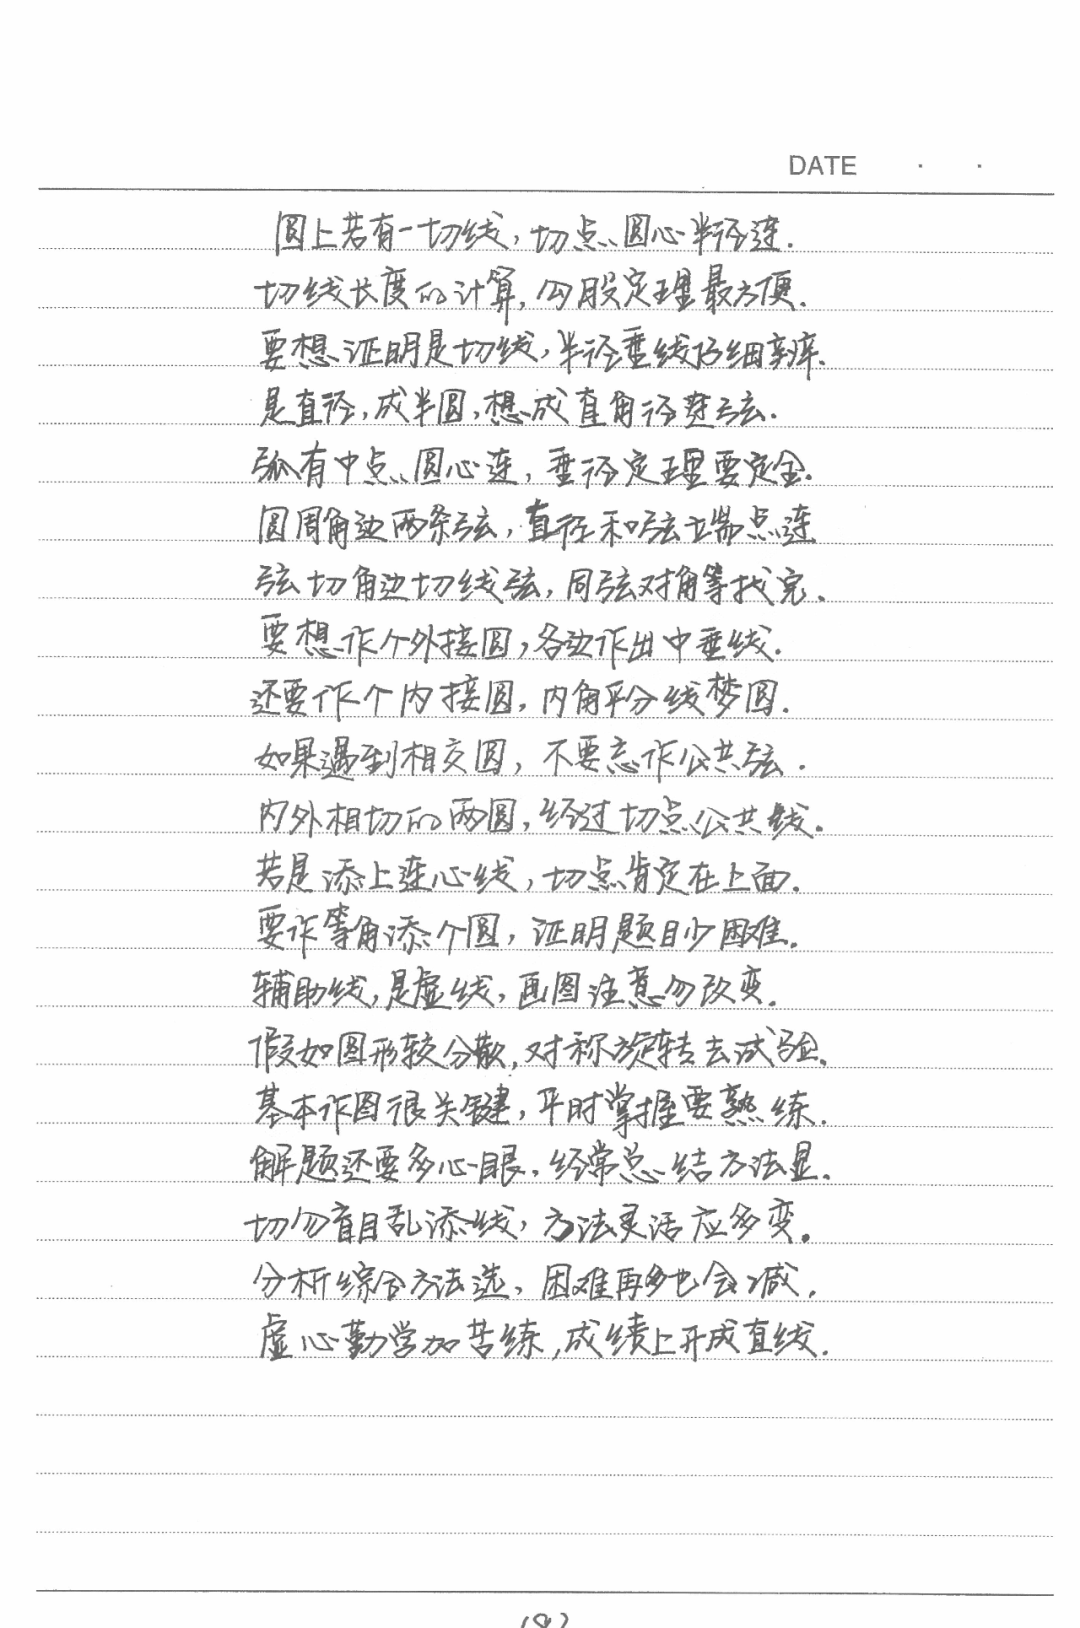 DATE . .
圆上若有一切线,切点圆心半径连.
切线长度的计算,勾股定理最方便.
要想证明是切线,半径垂线仔细辨.
是直径,成半圆,想成直角径连弦.
弧有中点圆心连,垂径定理要定全.
圆周角边两条弦,直径和弦端点连
弦切角边切线弦,同弦对角等找完.
要想作个外接圆,各边作出中垂线.
还要作个内接圆,内角平分线梦圆.
如果遇到相交圆,不要忘作公共弦.
内外相切的两圆,经过切点公共线.
若是添上连心线,切点肯定在上面.
要作等角添个圆,证明题目少困难.
辅助线,是虚线,画图注意勿改变.
假如图形较分散,对称旋转去试验.
基本作图很关键,平时掌握要熟练.
解题还要多心眼,经常总结方法显.
切勿盲目乱添线,方法灵活应多变.
分析综合方法选,困难再多也会减.
虚心勤学加苦练,成绩上升成直线.